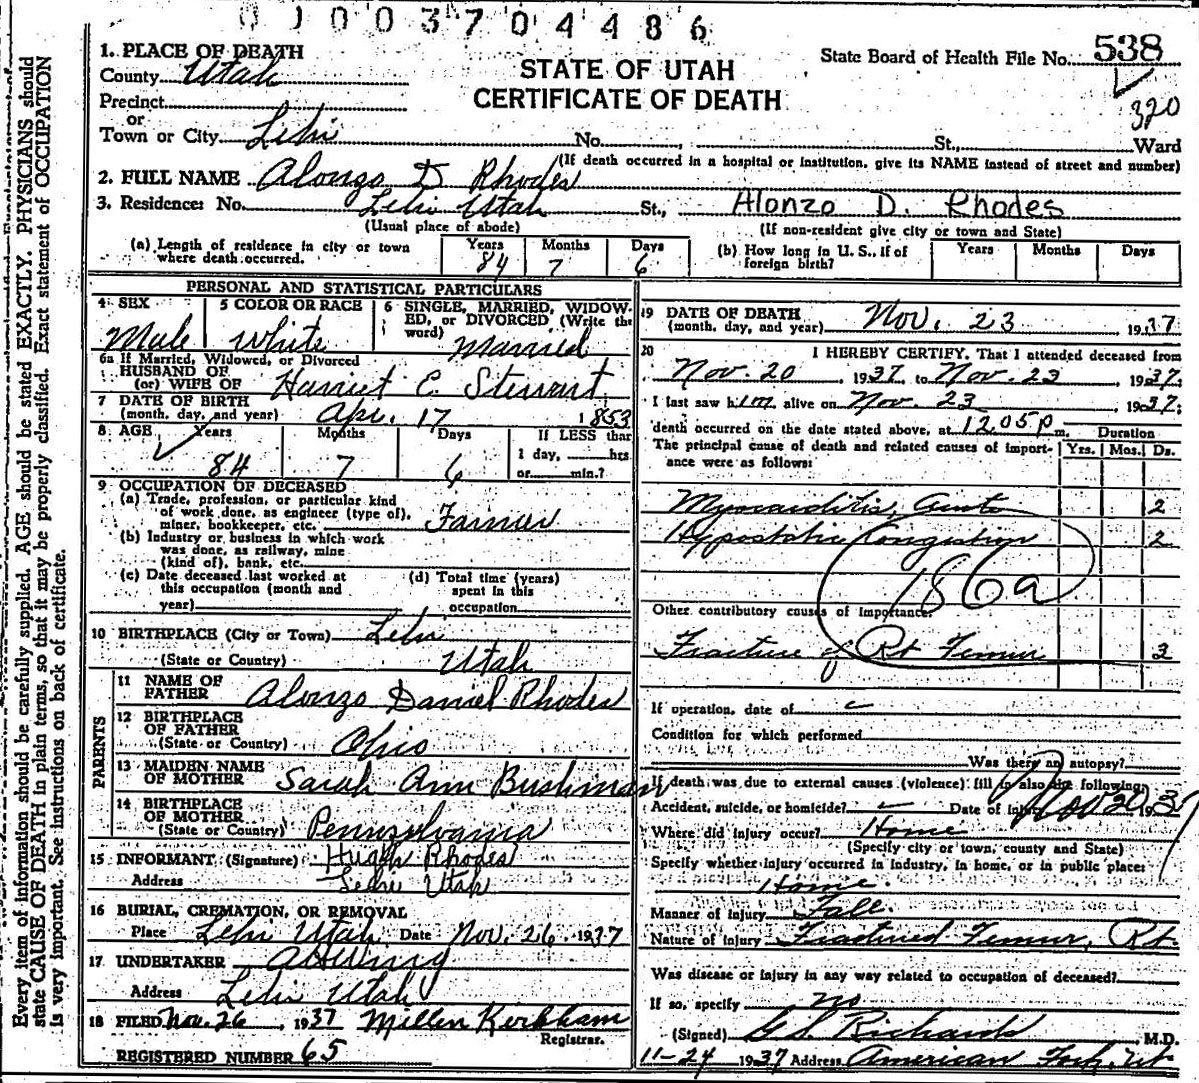 0 1 0 0 3 7 0 4 4 8 6
Every item of information should be carefully supplied. AGE should be stated EXACTLY. PHYSICIANS should
state CAUSE OF DEATH in plain terms, so that it may be properly classified. Exact statement of OCCUPATION
is very important. See instructions on back of certificate.
STATE OF UTAH
CERTIFICATE OF DEATH
State Board of Health File No. 538
320
1. PLACE OF DEATH
County Utah
Precinct
or
Town or City Lehi No. St., Ward
(If death occurred in a hospital or institution, give its NAME instead of street and number)
2. FULL NAME Alonzo D Rhodes
3. Residence: No. Lehi Utah St., Alonzo D. Rhodes
(Usual place of abode) (If non-resident give city or town and State)
(a) Length of residence in city or town where death occurred. Years 84 Months 7 Days 6
(b) How long in U. S., if of foreign birth? Years Months Days
PERSONAL AND STATISTICAL PARTICULARS
4 SEX Male
5 COLOR OR RACE White
6 SINGLE, MARRIED, WIDOWED, or DIVORCED (Write the word) Married
6a If Married, Widowed, or Divorced
HUSBAND OF
(or) WIFE OF Harriet E. Stewart
7 DATE OF BIRTH
(month, day, and year) Apr. 17 1853
8 AGE Years 84 Months 7 Days 6 If LESS than
1 day, hrs.
or min.?
9 OCCUPATION OF DECEASED
(a) Trade, profession, or particular kind
of work done, as engineer (type of),
miner, bookkeeper, etc. Farmer
(b) Industry or business in which work
was done, as railway, mine
(kind of), bank, etc.
(c) Date deceased last worked at
this occupation (month and
year)
(d) Total time (years)
spent in this
occupation
10 BIRTHPLACE (City or Town) Lehi
(State or Country) Utah
PARENTS
11 NAME OF
FATHER Alonzo Daniel Rhodes
12 BIRTHPLACE
OF FATHER
(State or Country) Ohio
13 MAIDEN NAME
OF MOTHER Sarah Ann Bushman
14 BIRTHPLACE
OF MOTHER
(State or Country) Pennsylvania
15 INFORMANT (Signature) Hugh Rhodes
Address Lehi Utah
16 BURIAL, CREMATION, OR REMOVAL
Place Lehi Utah Date Nov. 26 1937
17 UNDERTAKER
Address Lehi Utah
18 FILED Nov. 26, 1937 Millen Kirkham
Registrar.
REGISTERED NUMBER 65
19 DATE OF DEATH
(month, day, and year) Nov. 23 1937
20 I HEREBY CERTIFY, That I attended deceased from
Nov. 20, 1937, to Nov. 23, 1937;
I last saw him alive on Nov. 23, 1937;
death occurred on the date stated above, at 12 05 p m. Duration
The principal cause of death and related causes of importance were as follows: Yrs. Mos. Ds.
Myocarditis, acute 2
Hypostatic Congestion 2
186a
Other contributory causes of importance:
Fracture of Rt Femur 3
If operation, date of
Condition for which performed
Was there an autopsy?
If death was due to external causes (violence) fill in also the following:
Accident, suicide, or homicide? Date of injury Nov 20 1937
Where did injury occur? Home
(Specify city or town, county and State)
Specify whether injury occurred in industry, in home, or in public place:
Home.
Manner of Injury Fall.
Nature of Injury Fractured Femur, Rt.
Was disease or injury in any way related to occupation of deceased?
If so, specify no
(Signed) G S. Richards M.D.
11-24 1937 Address American Fork, Ut